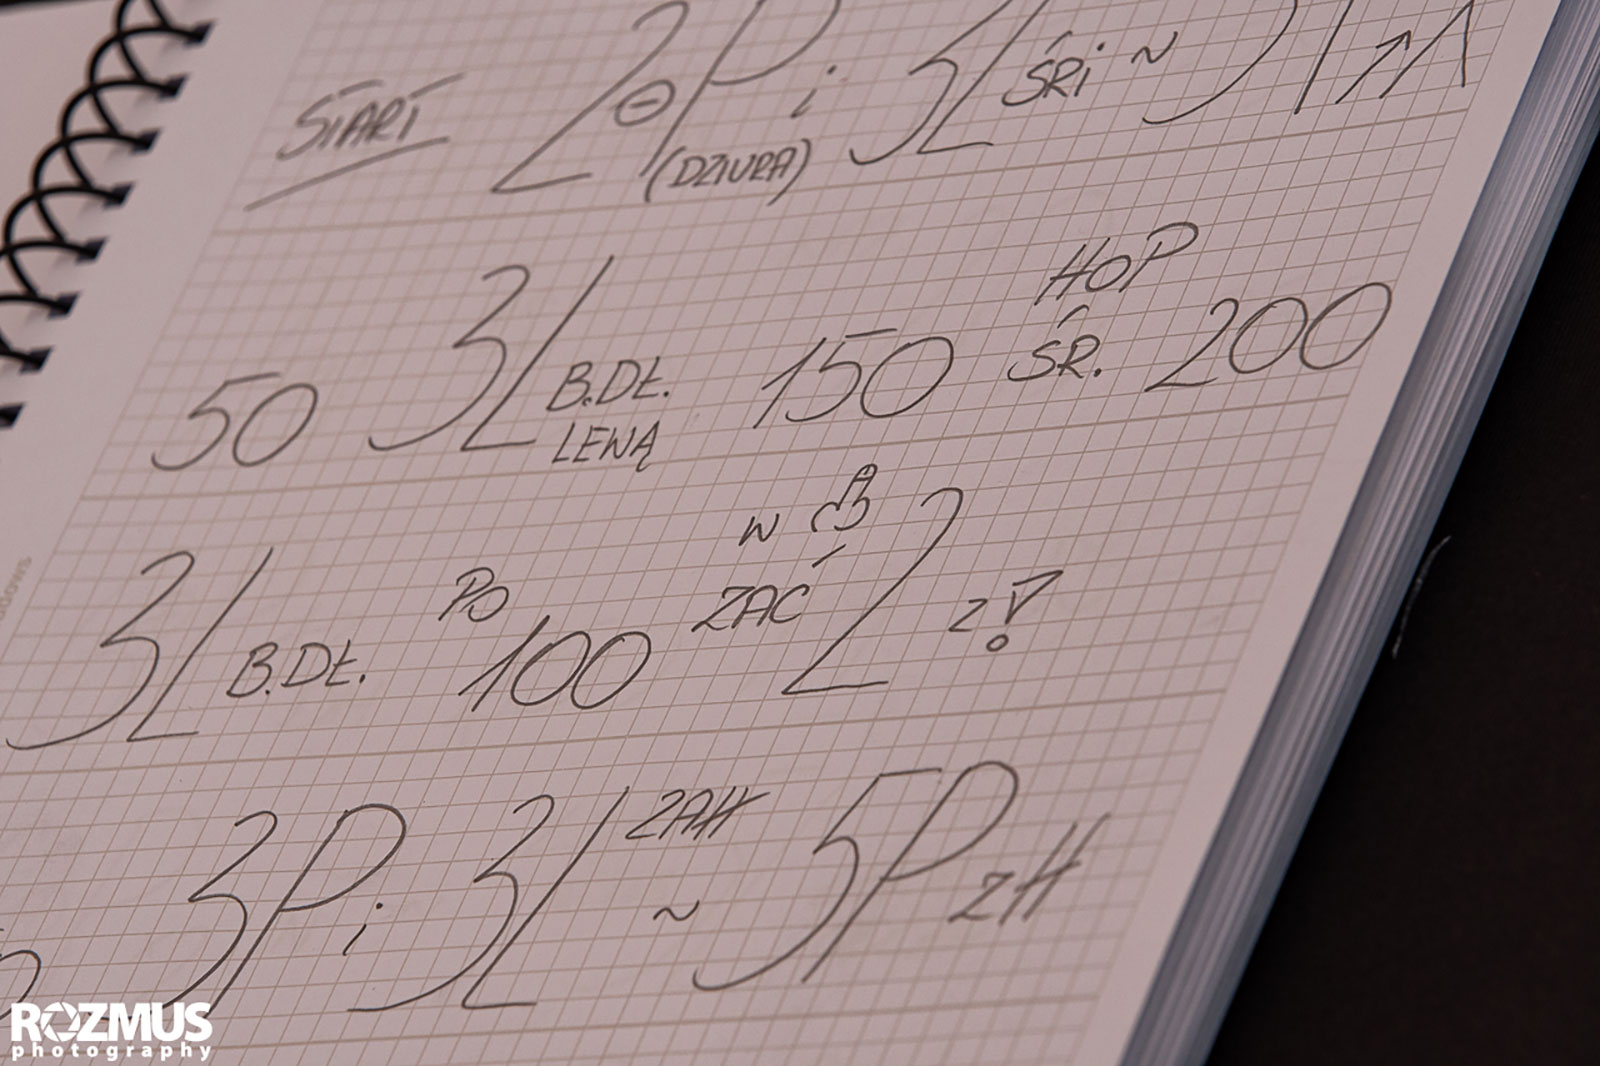 START 2 ⊖ P i 3L ŚRi ~
(DZIURA)
HOP
50 3L B.DŁ. 150 ŚR. 200
LEWĄ
W
3L B.DŁ. PO 100 ZAĆ 2 Z!
3P i 3L ZAH ~ 5P ZH
ROZMUS
photography